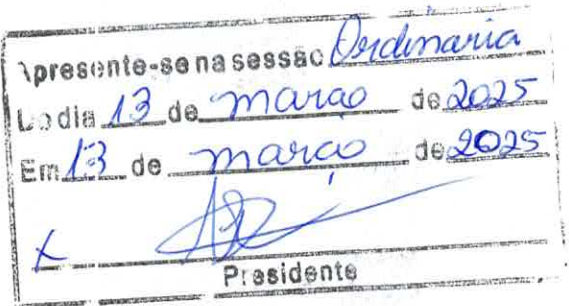 Apresente-se na sessão Ordinaria
Do dia 13 de março de 2025
Em 13 de março de 2025
X
Presidente